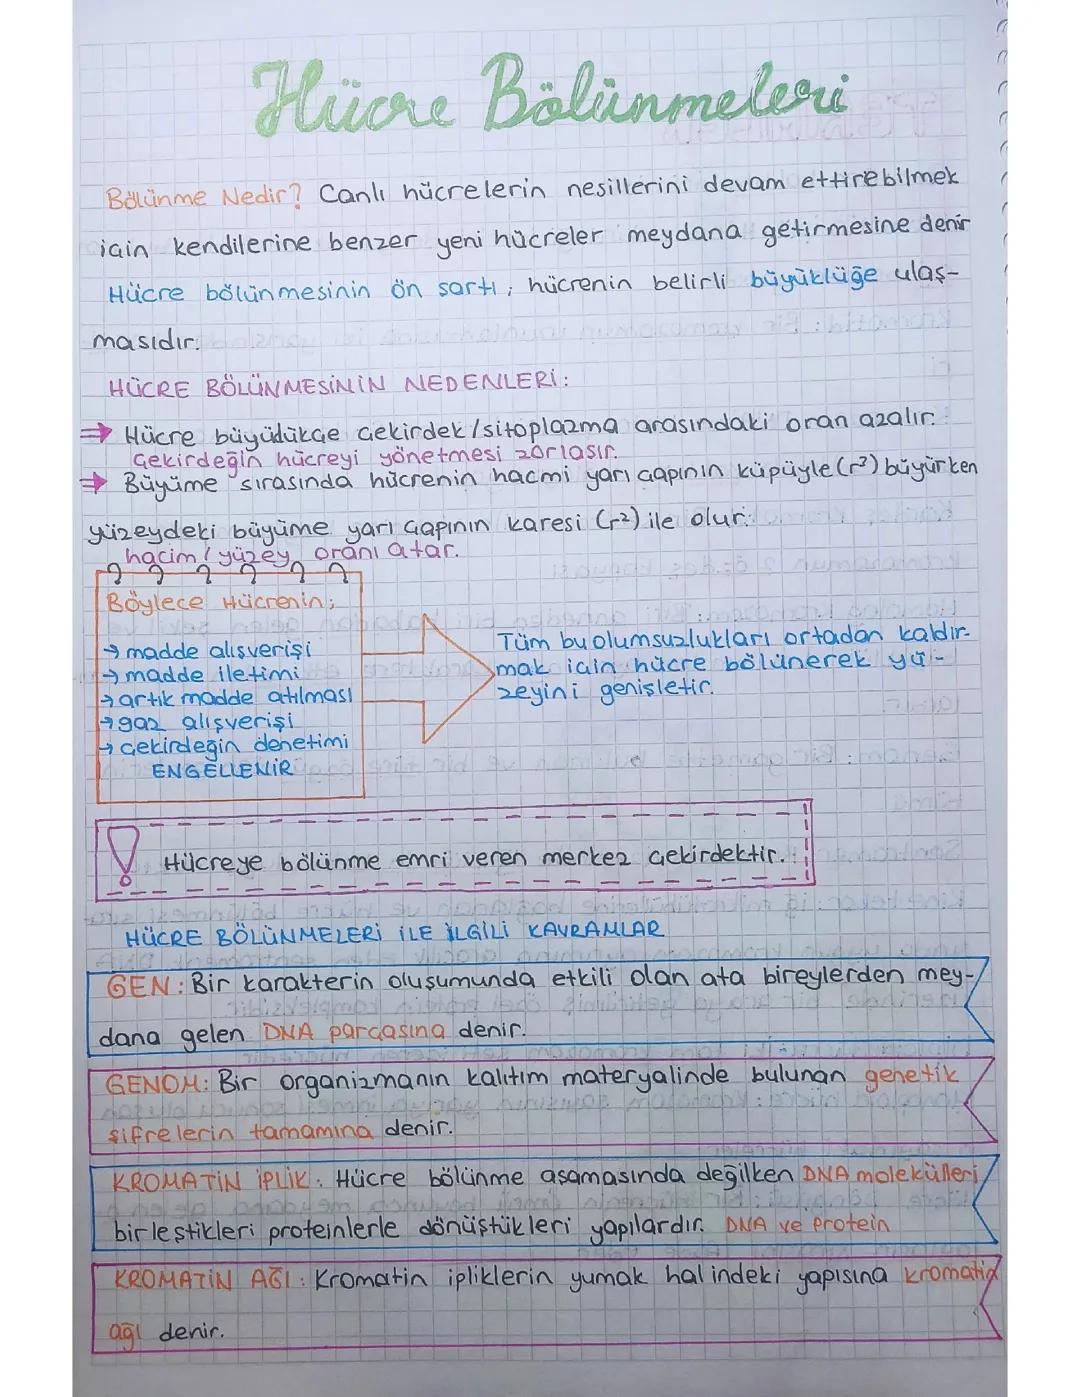 Hücre Bölünmeleri
Bölünme Nedir? Canlı hücrelerin nesillerini devam ettirebilmek
için kendilerine benzer yeni hücreler meydana getirmesine denir
Hücre bölünmesinin ön şartı; hücrenin belirli büyüklüğe ulaş-
masıdır.
HÜCRE BÖLÜNMESİNİN NEDENLERİ:
→ Hücre büyüdükçe çekirdek/sitoplazma arasındaki oran azalır.
Çekirdeğin hücreyi yönetmesi zorlaşır.
→ Büyüme sırasında hücrenin hacmi yarı çapının küpüyle (r³) büyürken
yüzeydeki büyüme yarı çapının karesi (r²) ile olur.
hacim/yüzey oranı artar.
Böylece Hücrenin;
→ madde alışverişi
→ madde iletimi
→ artık madde atılması
→ gaz alışverişi
→ çekirdeğin denetimi
ENGELLENİR
Tüm bu olumsuzlukları ortadan kaldır-
mak için hücre bölünerek yü-
zeyini genişletir.
! Hücreye bölünme emri veren merkez çekirdektir.
HÜCRE BÖLÜNMELERİ İLE İLGİLİ KAVRAMLAR
GEN: Bir karakterin oluşumunda etkili olan ata bireylerden mey-
dana gelen DNA parçasına denir.
GENOM: Bir organizmanın kalıtım materyalinde bulunan genetik
şifrelerin tamamına denir.
KROMATİN İPLİK: Hücre bölünme aşamasında değilken DNA molekülleri
birleştikleri proteinlerle dönüştükleri yapılardır. DNA ve protein
KROMATİN AĞI: Kromatin ipliklerin yumak halindeki yapısına kromatin
ağı denir.